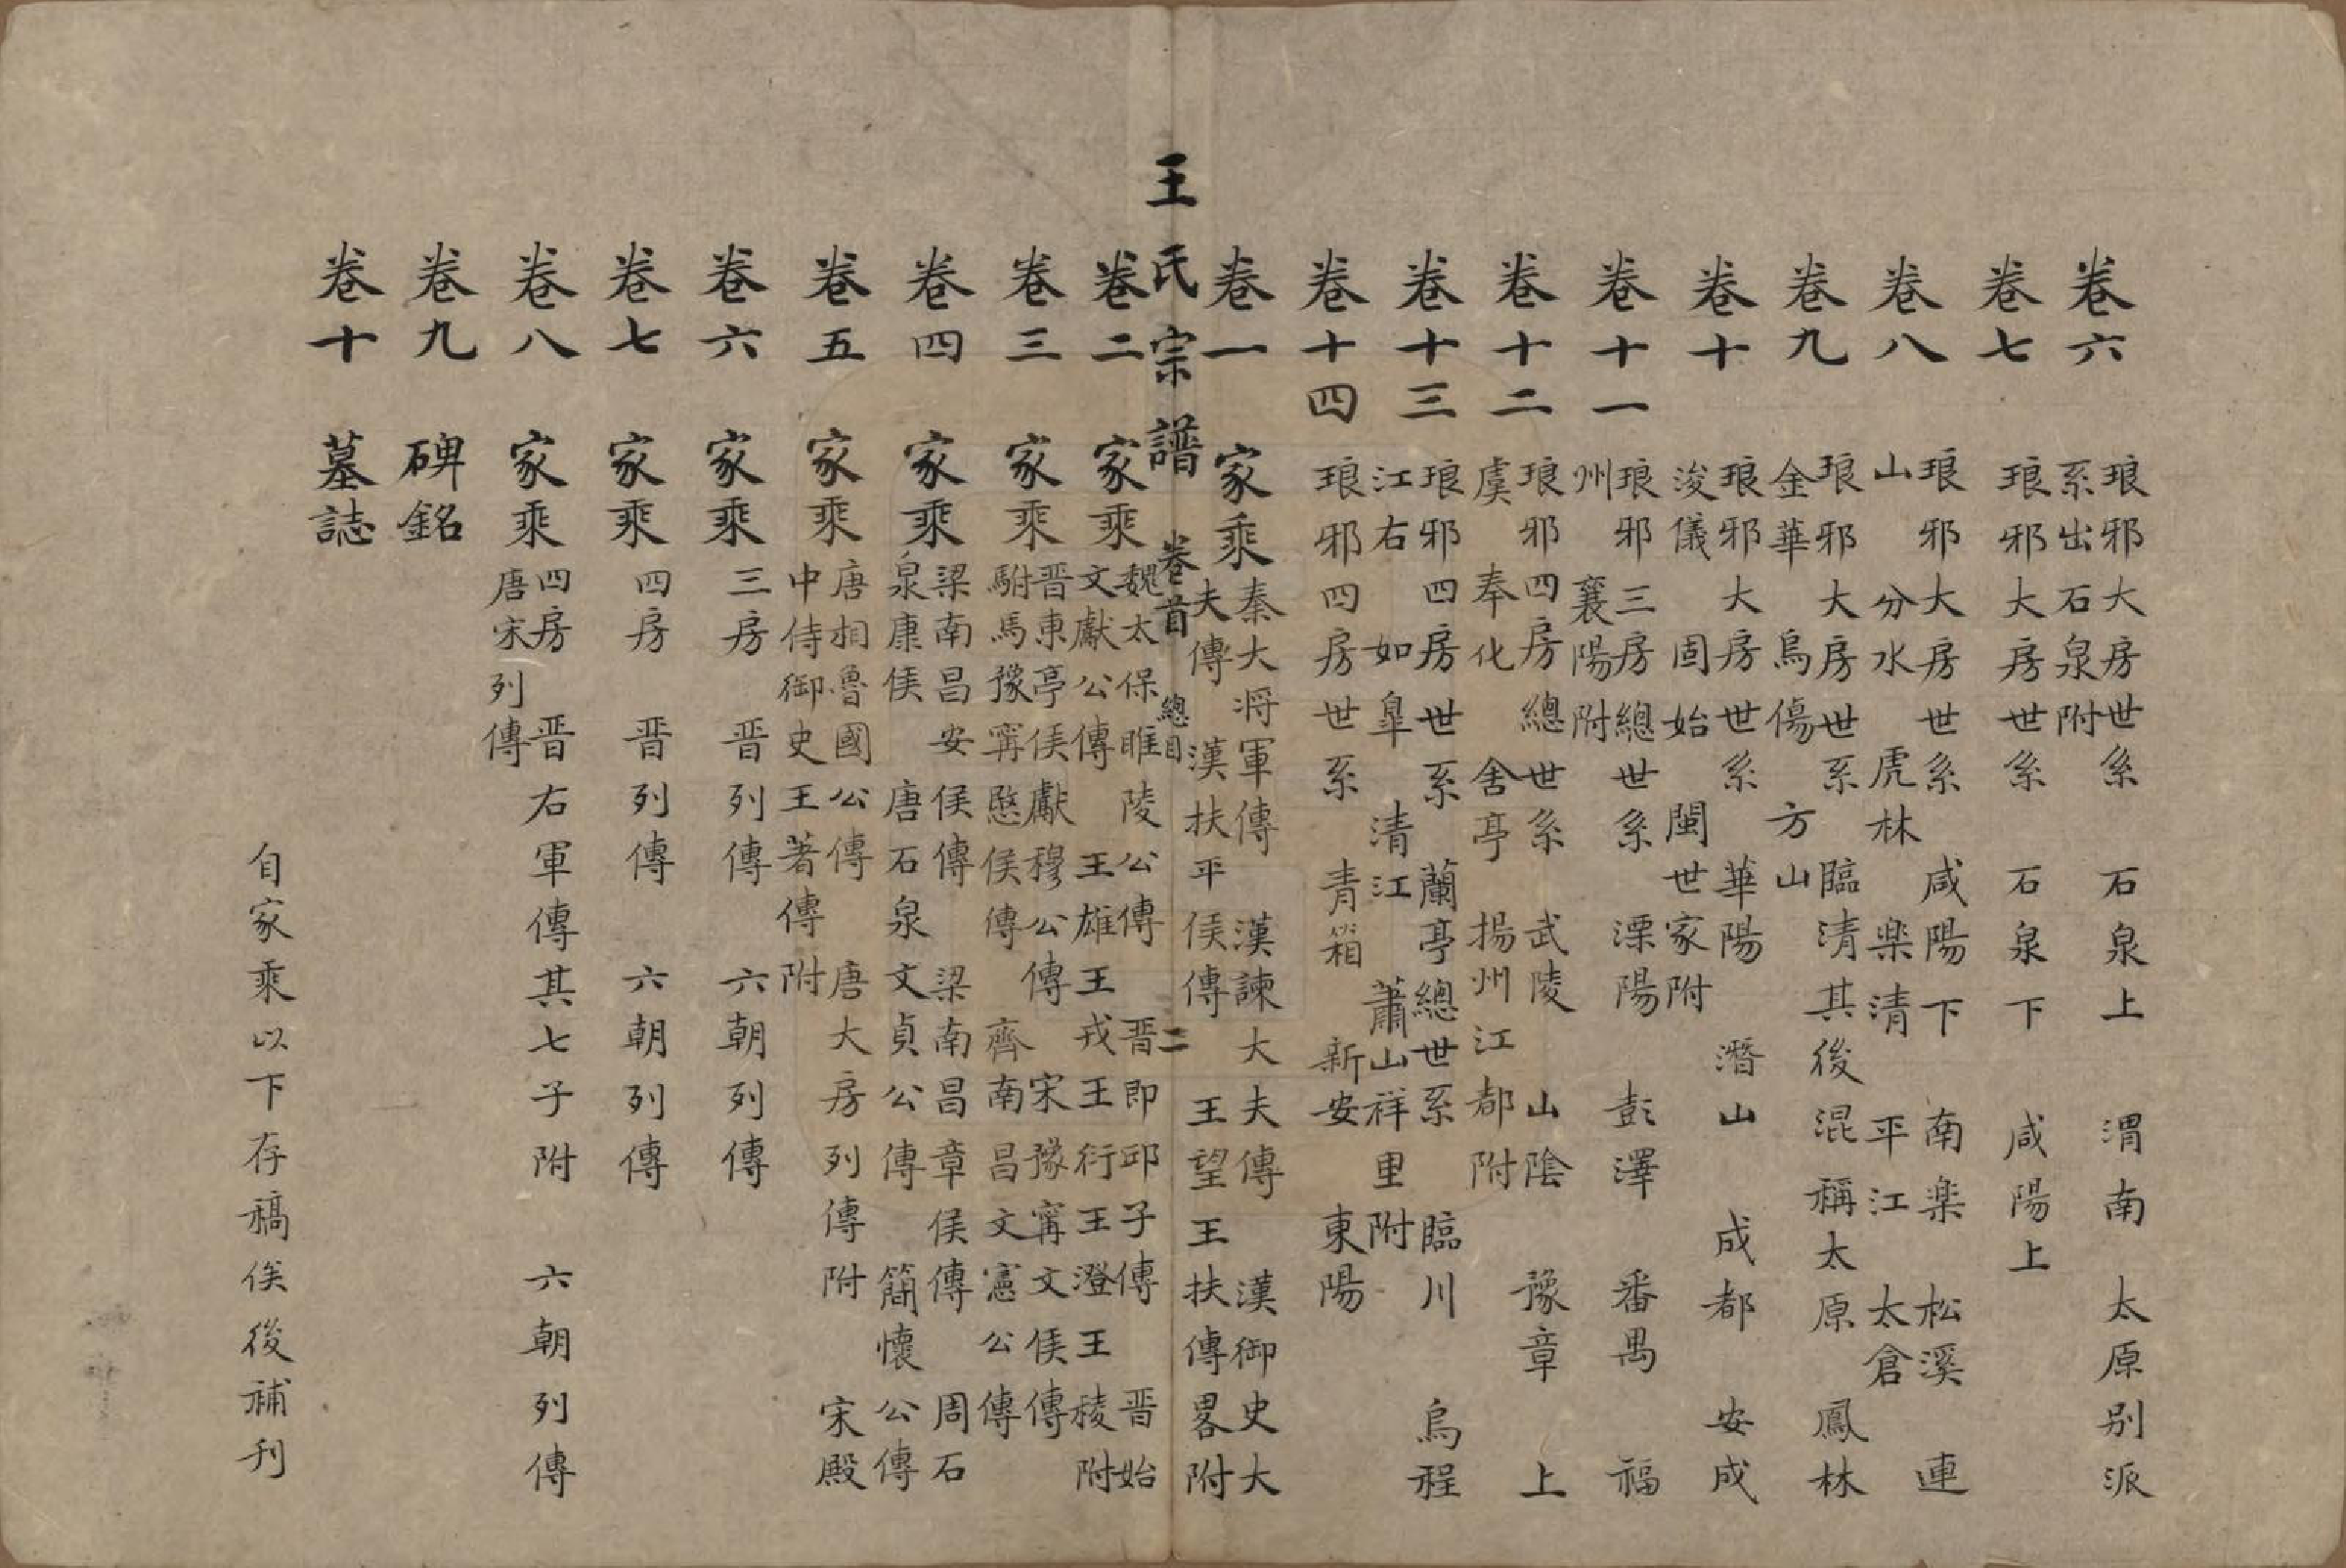 卷六 琅邪大房世系 石泉上 渭南 太原別派
系出石泉附
卷七 琅邪大房世系 石泉下 咸陽上
卷八 琅邪大房世系 咸陽下 南楽 松溪 連
山 分水 虎林 楽清 平江 太倉
卷九 琅邪大房世系 臨清其後混稱太原 鳳林
金華 烏傷 方山
卷十 琅邪大房世系 華陽 潛山 成都 安成
浚儀 固始 閩世家附
卷十一 琅邪三房總世系 溧陽 彭澤 番禺 福
州 襄陽附
卷十二 琅邪四房總世系 武陵 山陰 豫章 上
虞 奉化 舍亭 揚州江都附
卷十三 琅邪四房世系 蘭亭總世系 臨川 烏程
江右 如皐 清江 蕭山祥里附
卷十四 琅邪四房世系 青箱 新安 東陽
卷一 家乘 秦大將軍傳 漢諫大夫傳 漢御史大
夫傳 漢扶平侯傳 王望王扶傳畧附
王氏宗譜 卷首 總目 二
卷二 家乘 魏太保睢陵公傳 晋即邱子傳 晋始
文獻公傳 王雄王戎王衍王澄王稜附
卷三 家乘 晋東亭侯獻穆公傳 宋豫甯文侯傳
駙馬豫甯愍侯傳 齊南昌文憲公傳
卷四 家乘 梁南昌安侯傳 梁南昌章侯傳 周石
泉康侯 唐石泉文貞公傳 簡懷公傳
卷五 家乘 唐相魯國公傳 唐大房列傳附 宋殿
中侍御史王著傳附
卷六 家乘 三房 晋列傳 六朝列傳
卷七 家乘 四房 晋列傳 六朝列傳
卷八 家乘 四房 晋右軍傳其七子附 六朝列傳
唐宋列傳
卷九 碑銘
卷十 墓誌
自家乘以下存稿俟後補刊